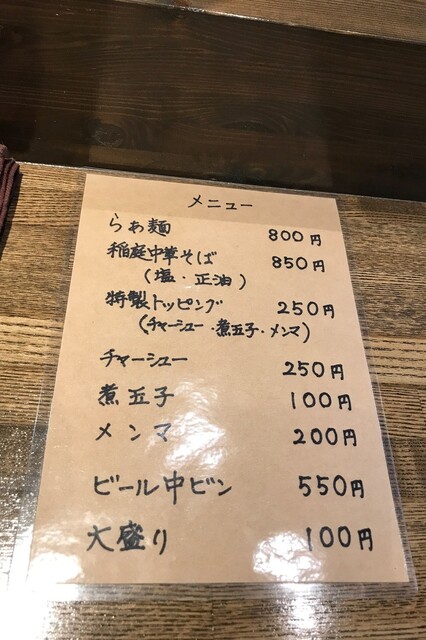 メニュー
らぁ麺 800円
稲庭中華そば 850円
(塩・正油)
特製トッピング 250円
(チャーシュー・煮玉子・メンマ)
チャーシュー 250円
煮玉子 100円
メンマ 200円
ビール中ビン 550円
大盛り 100円